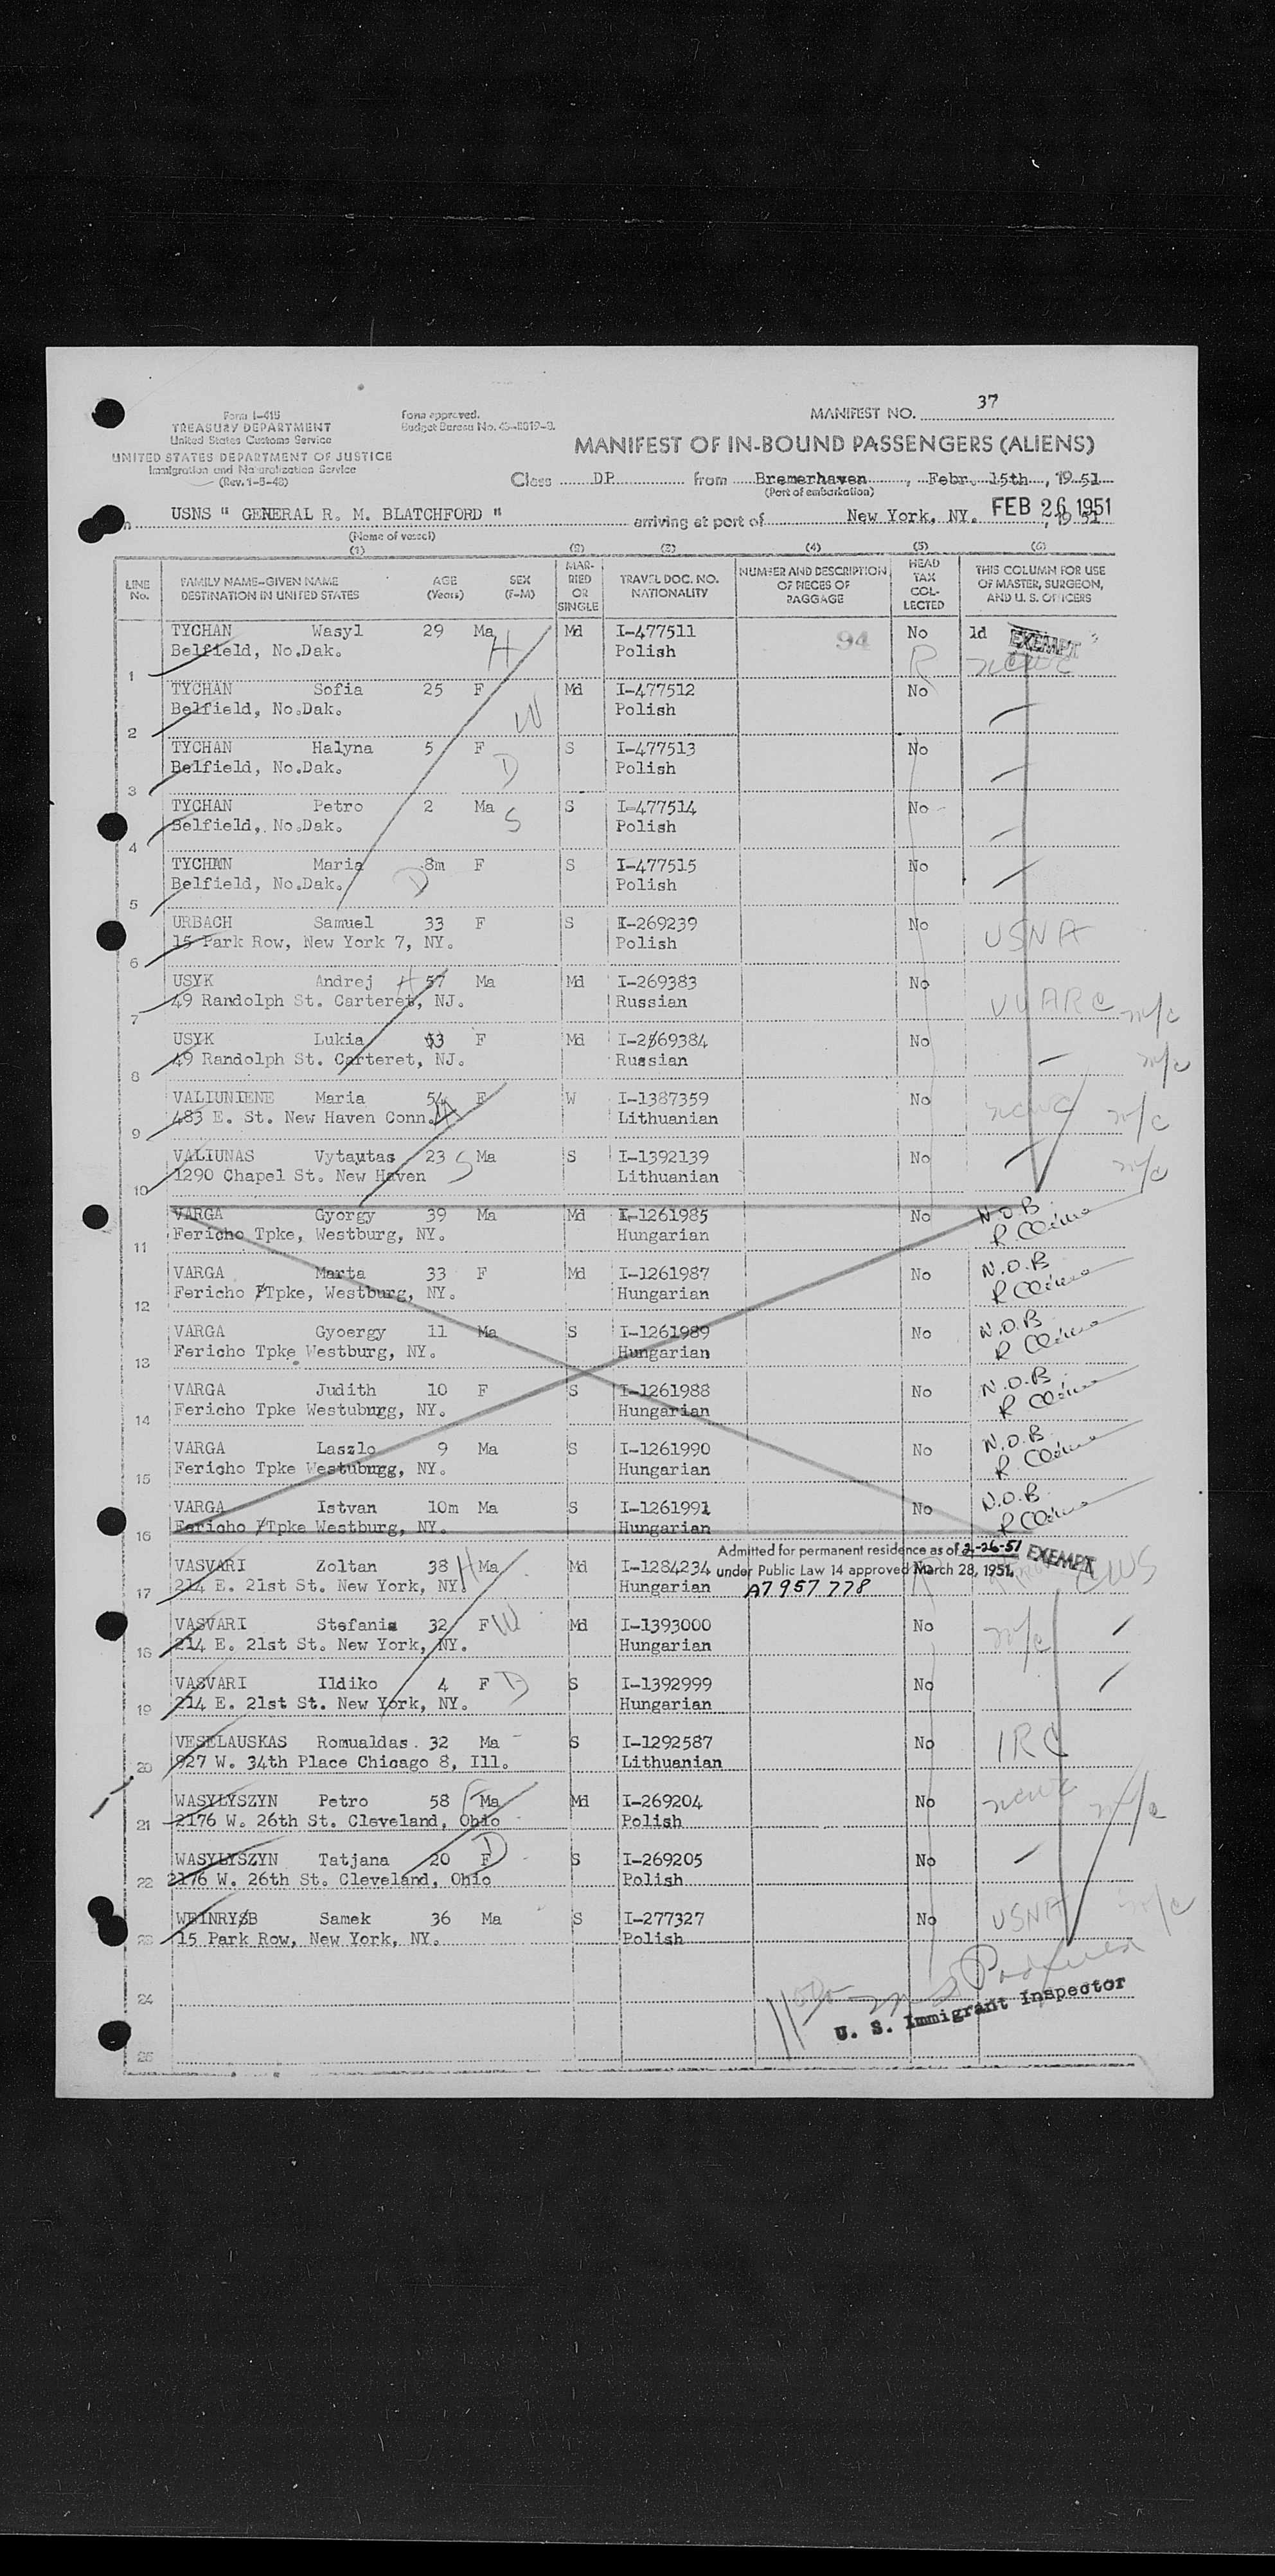 Form I-415
TREASURY DEPARTMENT
United States Customs Service
UNITED STATES DEPARTMENT OF JUSTICE
Immigration and Naturalization Service
(Rev. 1-5-48)
Form approved.
Budget Bureau No.
MANIFEST NO. 37
MANIFEST OF IN-BOUND PASSENGERS (ALIENS)
Class DP from Bremerhaven, Febr. 15th, 1951
(Port of embarkation)
USNS " GENERAL R. M. BLATCHFORD " arriving at port of New York, NY. FEB 26 1951, 1951
(Name of vessel)
(1) (2) (3) (4) (5) (6)
LINE No. FAMILY NAME-GIVEN NAME DESTINATION IN UNITED STATES AGE (Years) SEX (F-M) MARRIED OR SINGLE TRAVEL DOC. NO. NATIONALITY NUMBER AND DESCRIPTION OF PIECES OF BAGGAGE HEAD TAX COLLECTED THIS COLUMN FOR USE OF MASTER, SURGEON, AND U. S. OFFICERS
TYCHAN Wasyl 29 Ma H Md I-477511 94 No 1d EXEMPT
1 Belfield, No.Dak. Polish R ncwc
TYCHAN Sofia 25 F W Md I-477512 No
2 Belfield, No.Dak. Polish
TYCHAN Halyna 5 F D S I-477513 No
3 Belfield, No.Dak. Polish
TYCHAN Petro 2 Ma S S I-477514 No
4 Belfield, No.Dak. Polish
TYCHAN Maria 8m F S I-477515 No
5 Belfield, No.Dak. D Polish
URBACH Samuel 33 F S I-269239 No
6 15 Park Row, New York 7, NY. Polish USNA
USYK Andrej H 57 Ma Md I-269383 No
7 49 Randolph St. Carteret, NJ. Russian n/c
USYK Lukia 53 F Md I-269384 No
8 49 Randolph St. Carteret, NJ. Russian n/c
VALIUNIENE Maria 54 F W I-1387359 No ncwc n/c
9 483 E. St. New Haven Conn. Lithuanian
VALIUNAS Vytautas 23 S Ma S I-1392139 No n/c
10 1290 Chapel St. New Haven Lithuanian
VARGA Gyorgy 39 Ma Md I-1261985 No N.O.B
11 Fericho Tpke, Westburg, NY. Hungarian
VARGA Marta 33 F Md I-1261987 No N.O.B
12 Fericho Tpke, Westburg, NY. Hungarian
VARGA Gyoergy 11 Ma S I-1261989 No N.O.B
13 Fericho Tpke Westburg, NY. Hungarian
VARGA Judith 10 F S I-1261988 No N.O.B
14 Fericho Tpke Westuburg, NY. Hungarian
VARGA Laszlo 9 Ma S I-1261990 No N.O.B
15 Fericho Tpke Westuburg, NY. Hungarian
VARGA Istvan 10m Ma S I-1261991 No N.O.B
16 Fericho Tpke Westburg, NY. Hungarian
Admitted for permanent residence as of 2-26-51 EXEMPT
VASVARI Zoltan 38 H Ma Md I-1284234 under Public Law 14 approved March 28, 1951. CWS
17 214 E. 21st St. New York, NY. Hungarian A7 957 778
VASVARI Stefania 32 F W Md I-1393000 No n/c
18 214 E. 21st St. New York, NY. Hungarian
VASVARI Ildiko 4 F D S I-1392999 No
19 214 E. 21st St. New York, NY. Hungarian
VESELAUSKAS Romualdas. 32 Ma S I-1292587 No IRC
20 927 W. 34th Place Chicago 8, Ill. Lithuanian
WASYLYSZYN Petro 58 F Ma Md I-269204 No ncwc n/c
21 2176 W. 26th St. Cleveland, Ohio Polish
WASYLYSZYN Tatjana 20 F D S I-269205 No
22 2176 W. 26th St. Cleveland, Ohio Polish
WEINRYB Samek 36 Ma S I-277327 No USNA n/c
23 15 Park Row, New York, NY. Polish
24
U. S. Immigrant Inspector
25